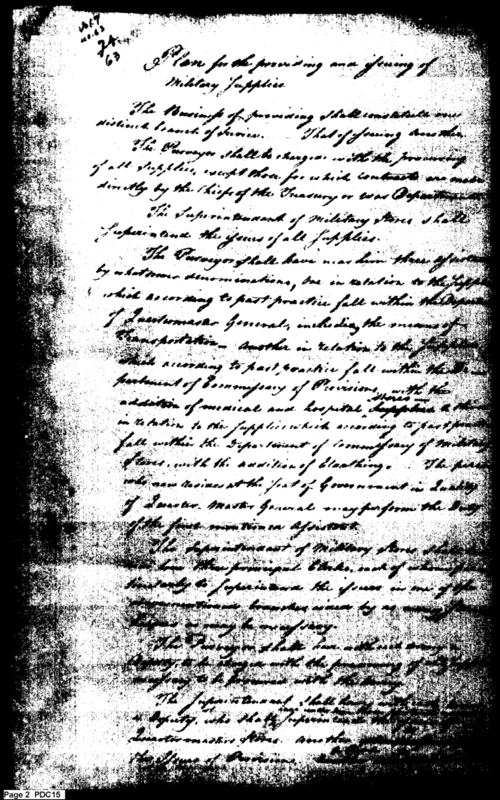 63
Plan for the providing and issuing of
Military Supplies
The Business of providing shall constitute one
distinct branch of service. That of issuing another
The Purveyor shall be charged with the procuring
of all Supplies, except those for which contracts are made
directly by the Chiefs of the Treasury or War Departments
The Superintendant of Military Stores shall
Superintend the issues of all Supplies.
The Purveyor shall have near him three Assistants
by whatsoever denominations, one in relation to the Supplies
which according to past practice fall within the Department
of Quartermaster General, including the means of
Transportation Another in relation to the Supplies
which according to past practice fall within the De-
partment of Commissary of Provisions with the
Stores
addition of medical and hospital Supplies A third
in relation to the Supplies which according to past practice
fall within the Department of Commissary of Military
Stores, with the addition of Cloathing. The person
who now resides at the Seat of Government in Quality
of Quarter Master General may perform the Duty
of the first mentioned Assistant.
The Superintendant of Military Stores shall
have three principal Clerks, each of whom
to Superintend the issues in one of the
branches aided by as many
as may be necessary.
The Purveyor shall have with each army a
Deputy, to be charged with the procuring of all
necessary to be procured with the army
The Superintendant shall have with
a Deputy, who shall Superintend the
Quartermasters Stores another
the Issues of Provisions
Page 2 PDC15